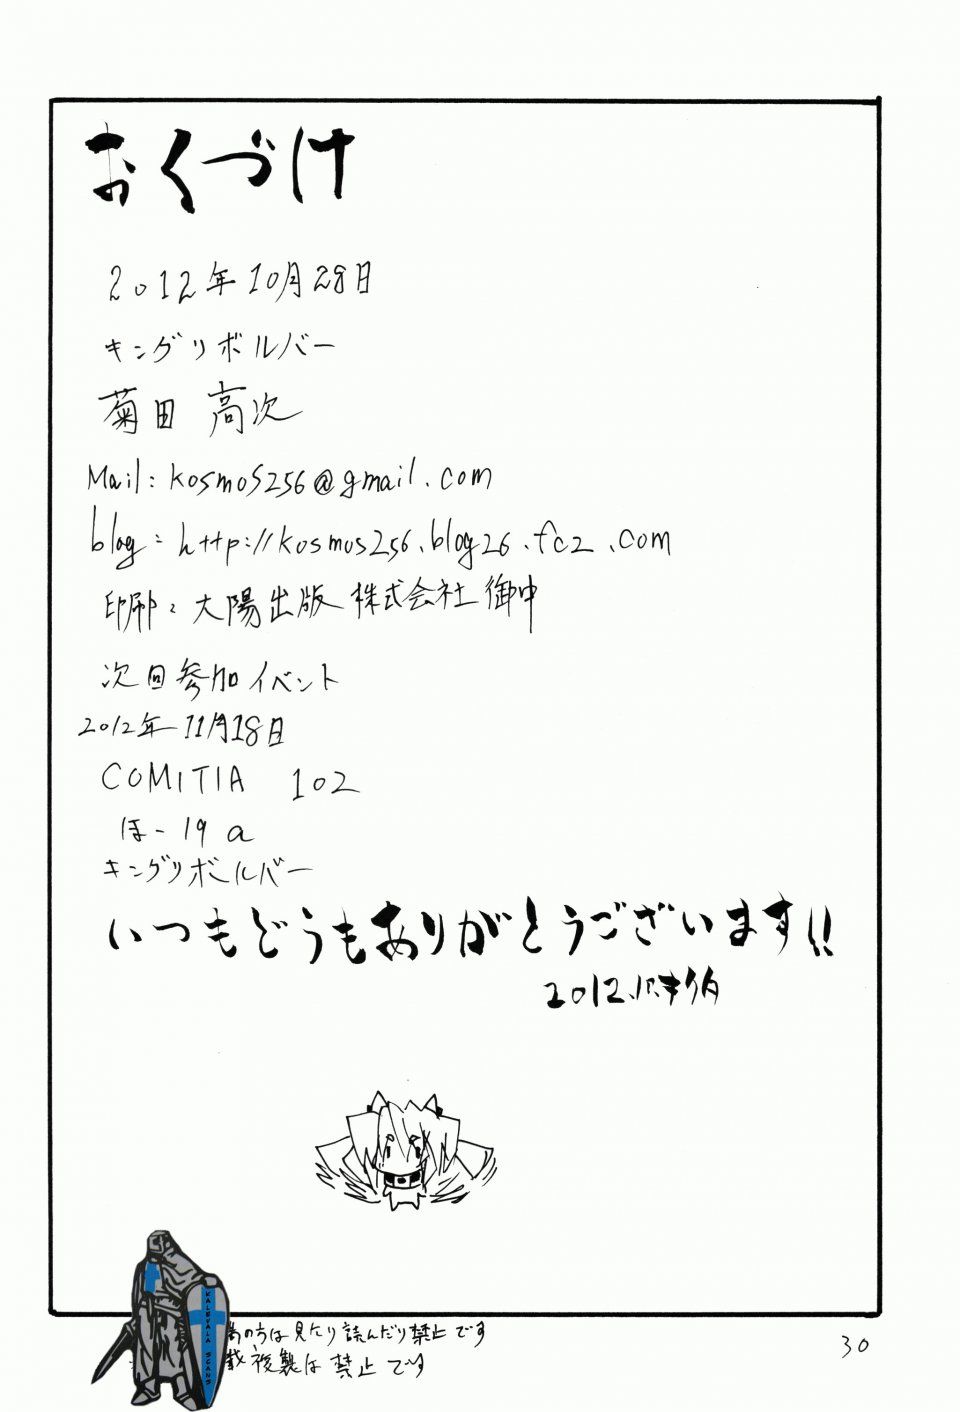 おくづけ
2012年10月28日
キングリボルバー
菊田 高次
Mail: kosmos256@gmail.com
blog: http://kosmos256.blog26.fc2.com
印刷: 大陽出版 株式会社 御中
次回参加イベント
2012年11月18日
COMITIA 102
ほ-19a
キングリボルバー
いつもどうもありがとうございます!!
2012.
KALEVALA SCANS
の方は見たり読んだり禁止です
複製は禁止です
30